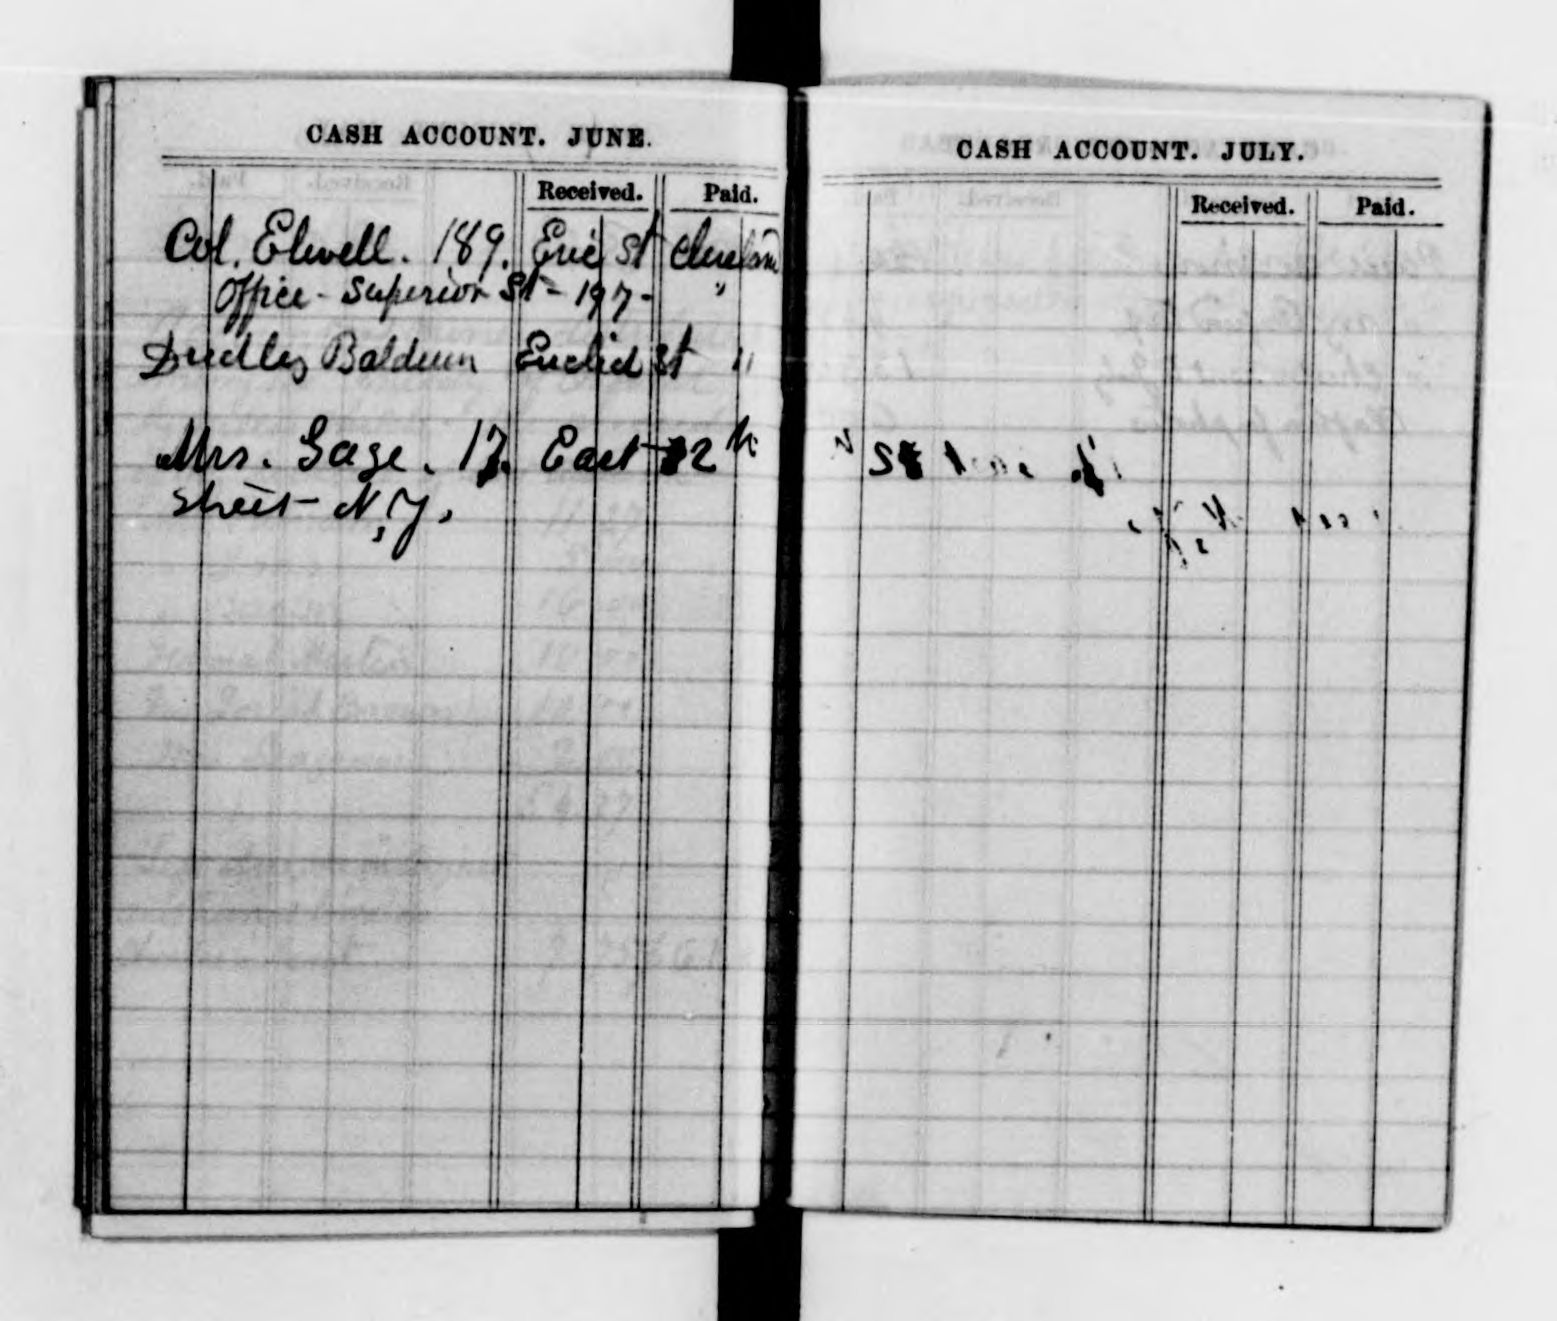 CASH ACCOUNT. JUNE.
Received. Paid.
Col. Elwell. 189. Erie St Cleveland
Office - Superior St - 197 - "
Dudley Baldwin Euclid St "
Mrs. Gage. 17. East 32
Street - N.Y.
CASH ACCOUNT. JULY.
Received. Paid.